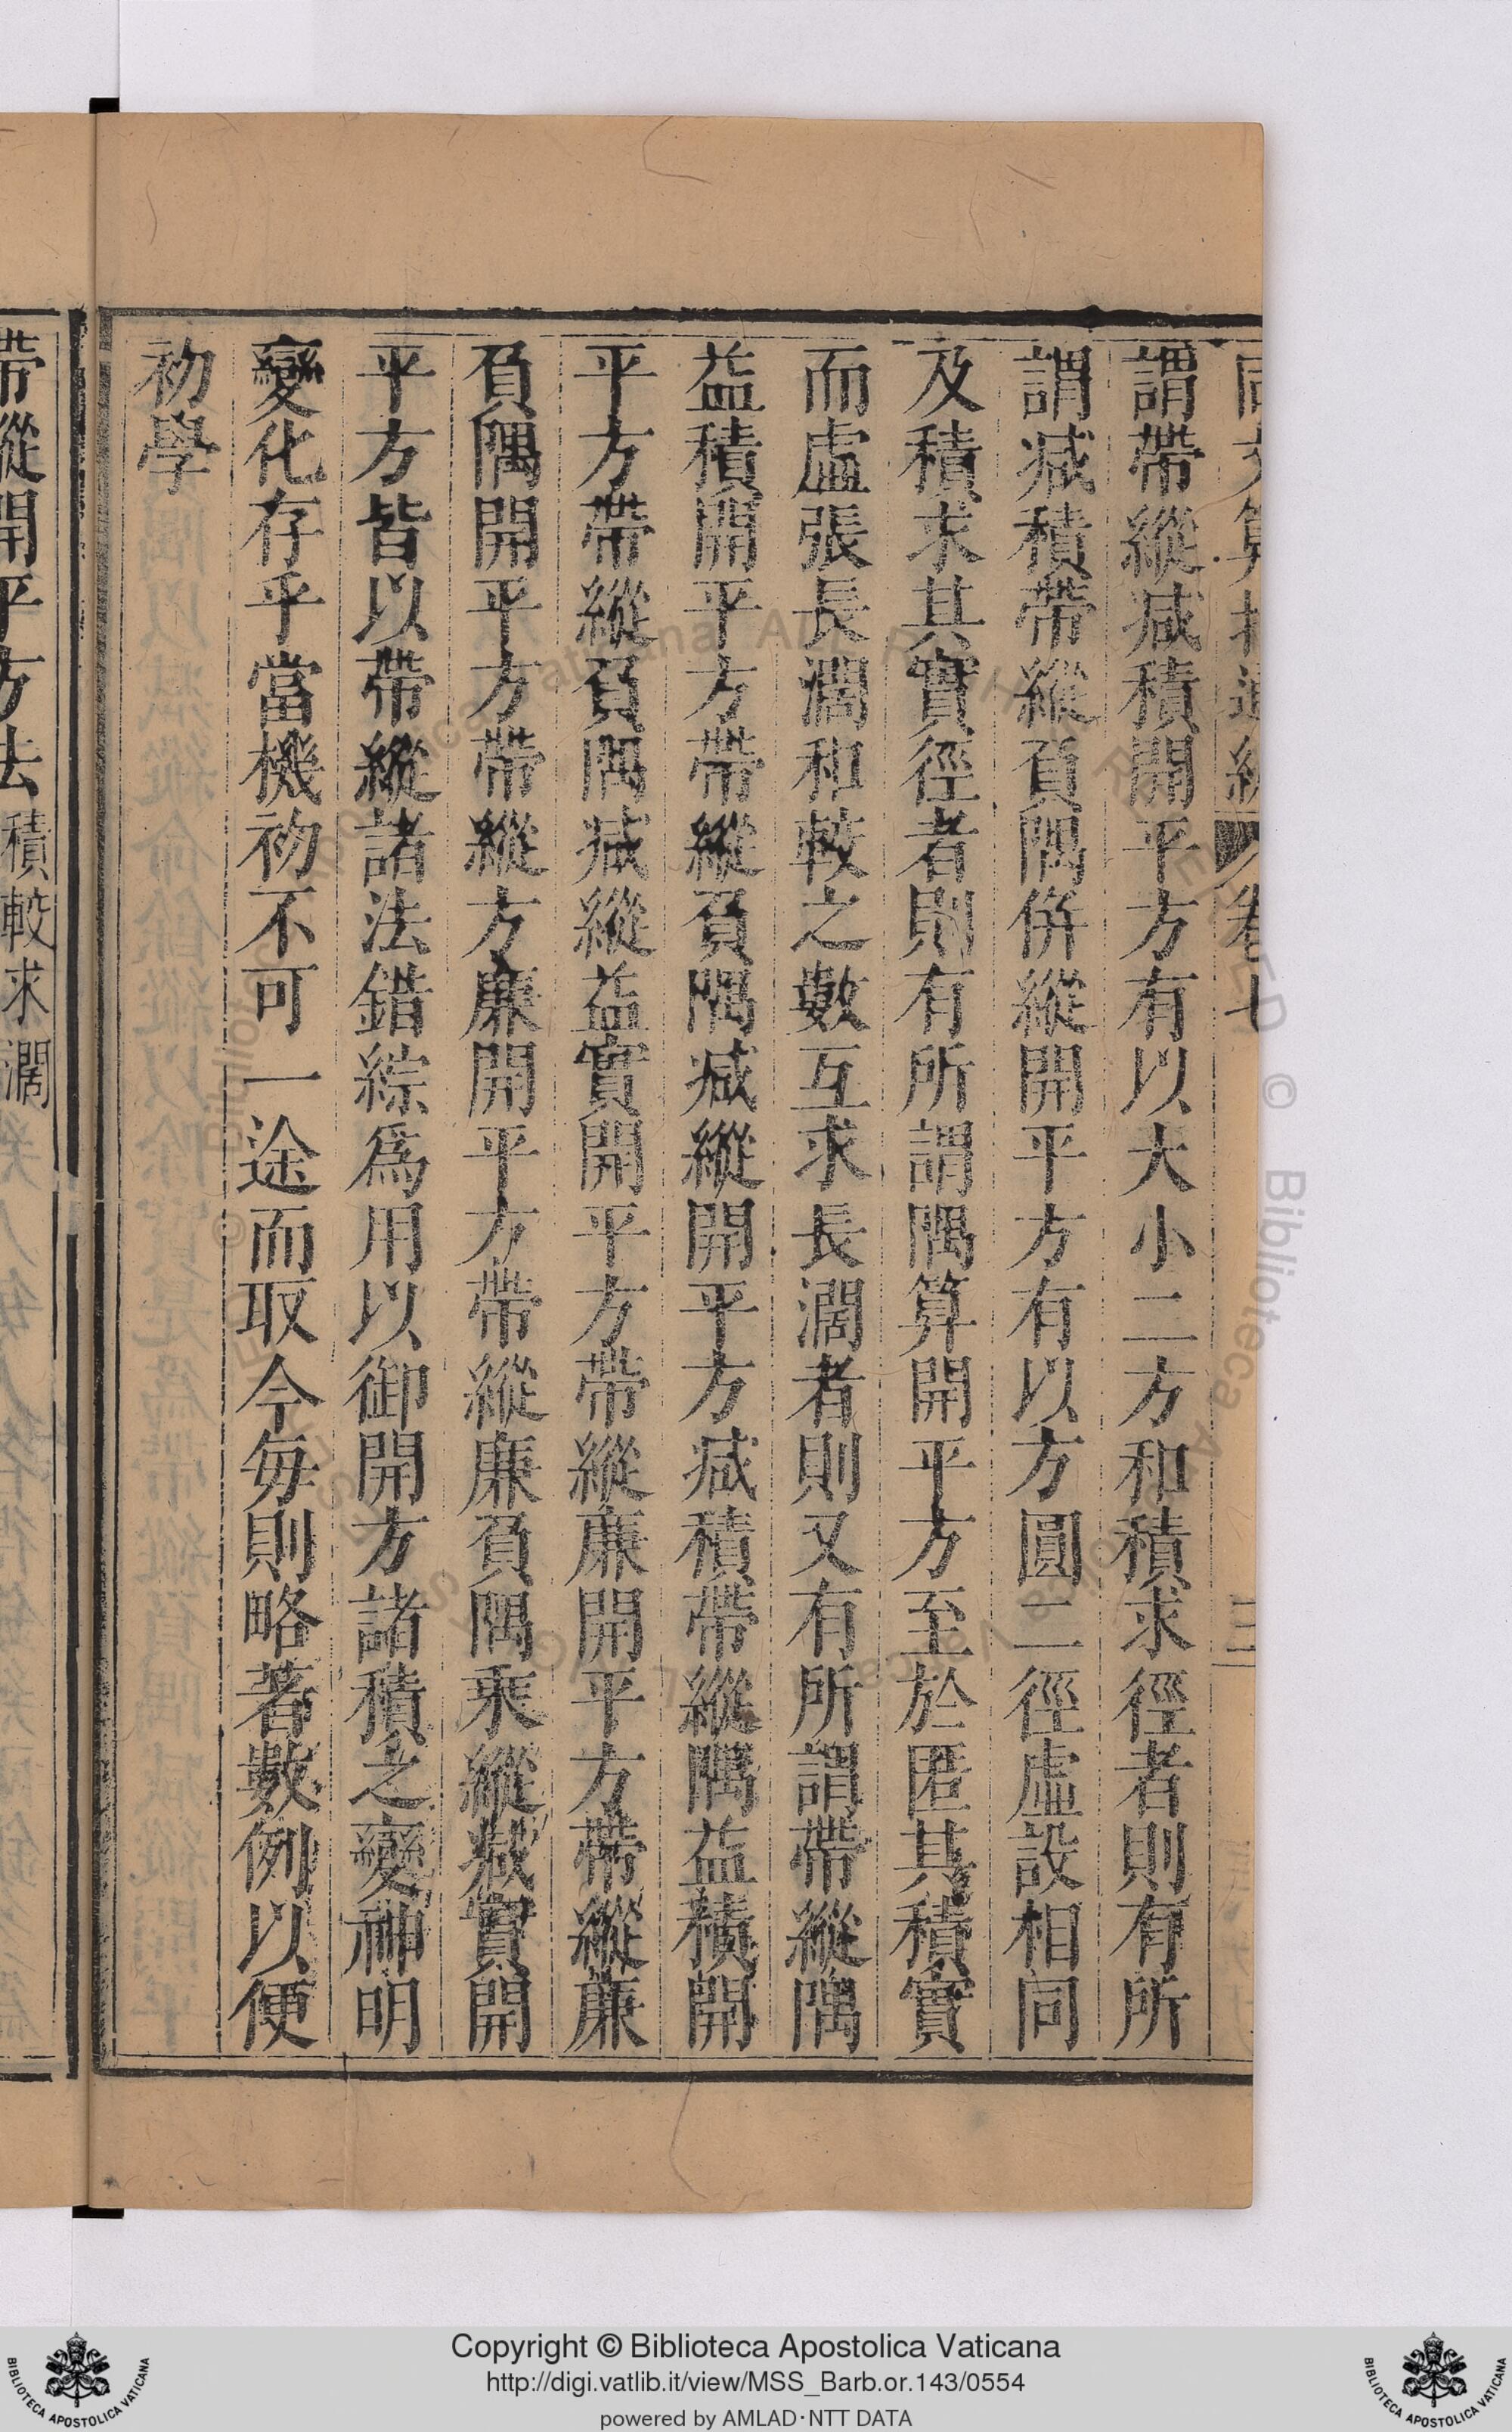 謂帶縱減積開平方有以大小二方和積求徑者則有所
謂減積帶縱負隅併縱開平方有以方圓二徑虛設相同
及積求其實徑者則有所謂隅算開平方至於匿其積實
而虛張長濶和較之數互求長濶者則又有所謂帶縱隅
益積開平方帶縱負隅減縱開平方減積帶縱隅益積開
平方帶縱負隅減縱益實開平方帶縱廉開平方帶縱廉
負隅開平方帶縱方廉開平方帶縱廉負隅乘縱減實開
平方皆以帶縱諸法錯綜爲用以御開方諸積之變神明
變化存乎當機初不可一途而取今每則略著數例以便
初學
帶縱開平方法積較求濶
Copyright © Biblioteca Apostolica Vaticana
http://digi.vatlib.it/view/MSS_Barb.or.143/0554
powered by AMLAD·NTT DATA
BIBLIOTECA APOSTOLICA VATICANA
BIBLIOTECA APOSTOLICA VATICANA